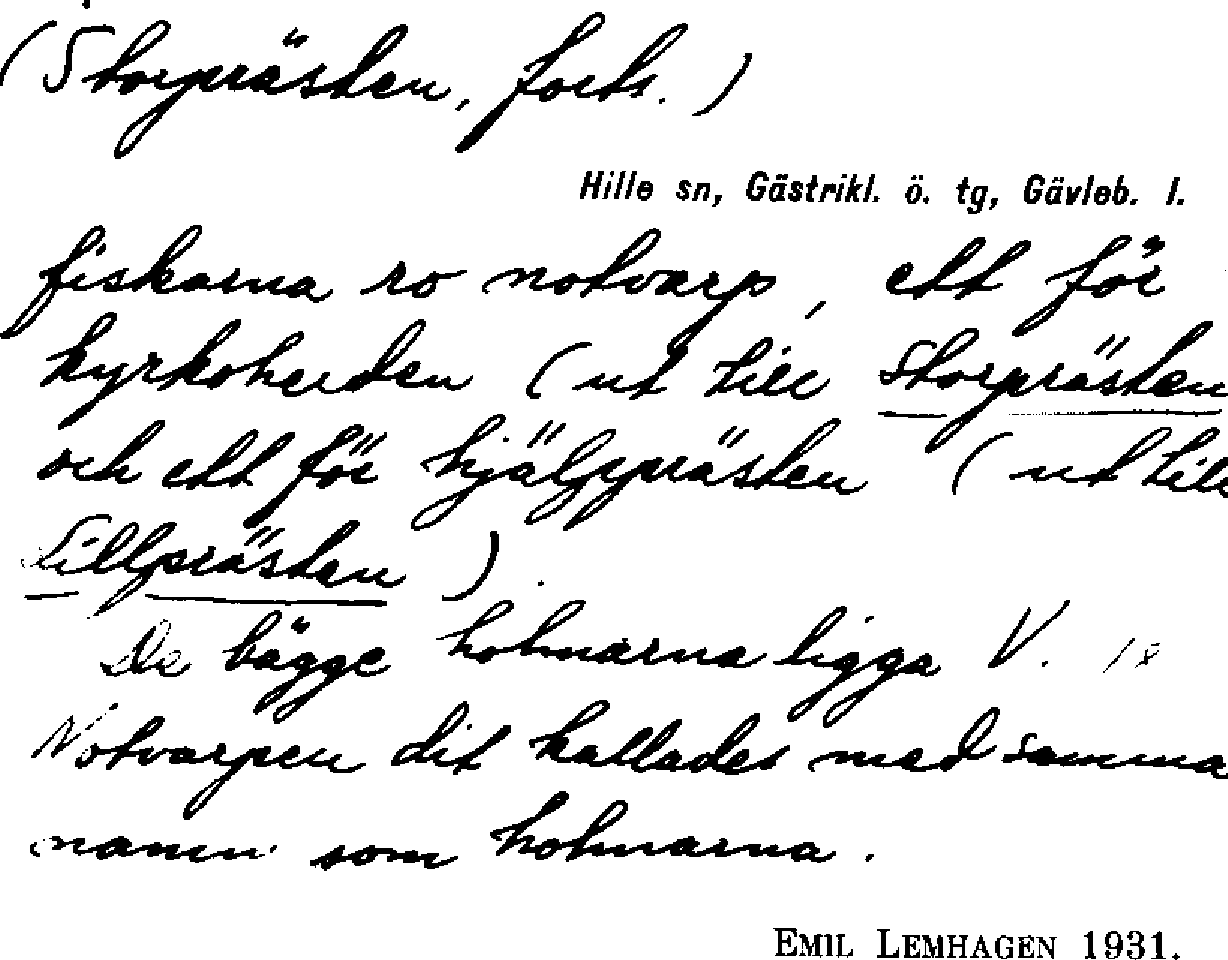 (Storprästen, forts.)
Hille sn, Gästrikl. ö. tg, Gävleb. l.
fiskarna ro notvarp, ett för
kyrkoherden (ut till Storprästen
och ett för hjälpprästen (ut till
Lillprästen).
De bägge holmarna ligga V. 18
Notvarpen dit kallades med samma
namn som holmarna.
EMIL LEMHAGEN 1931.